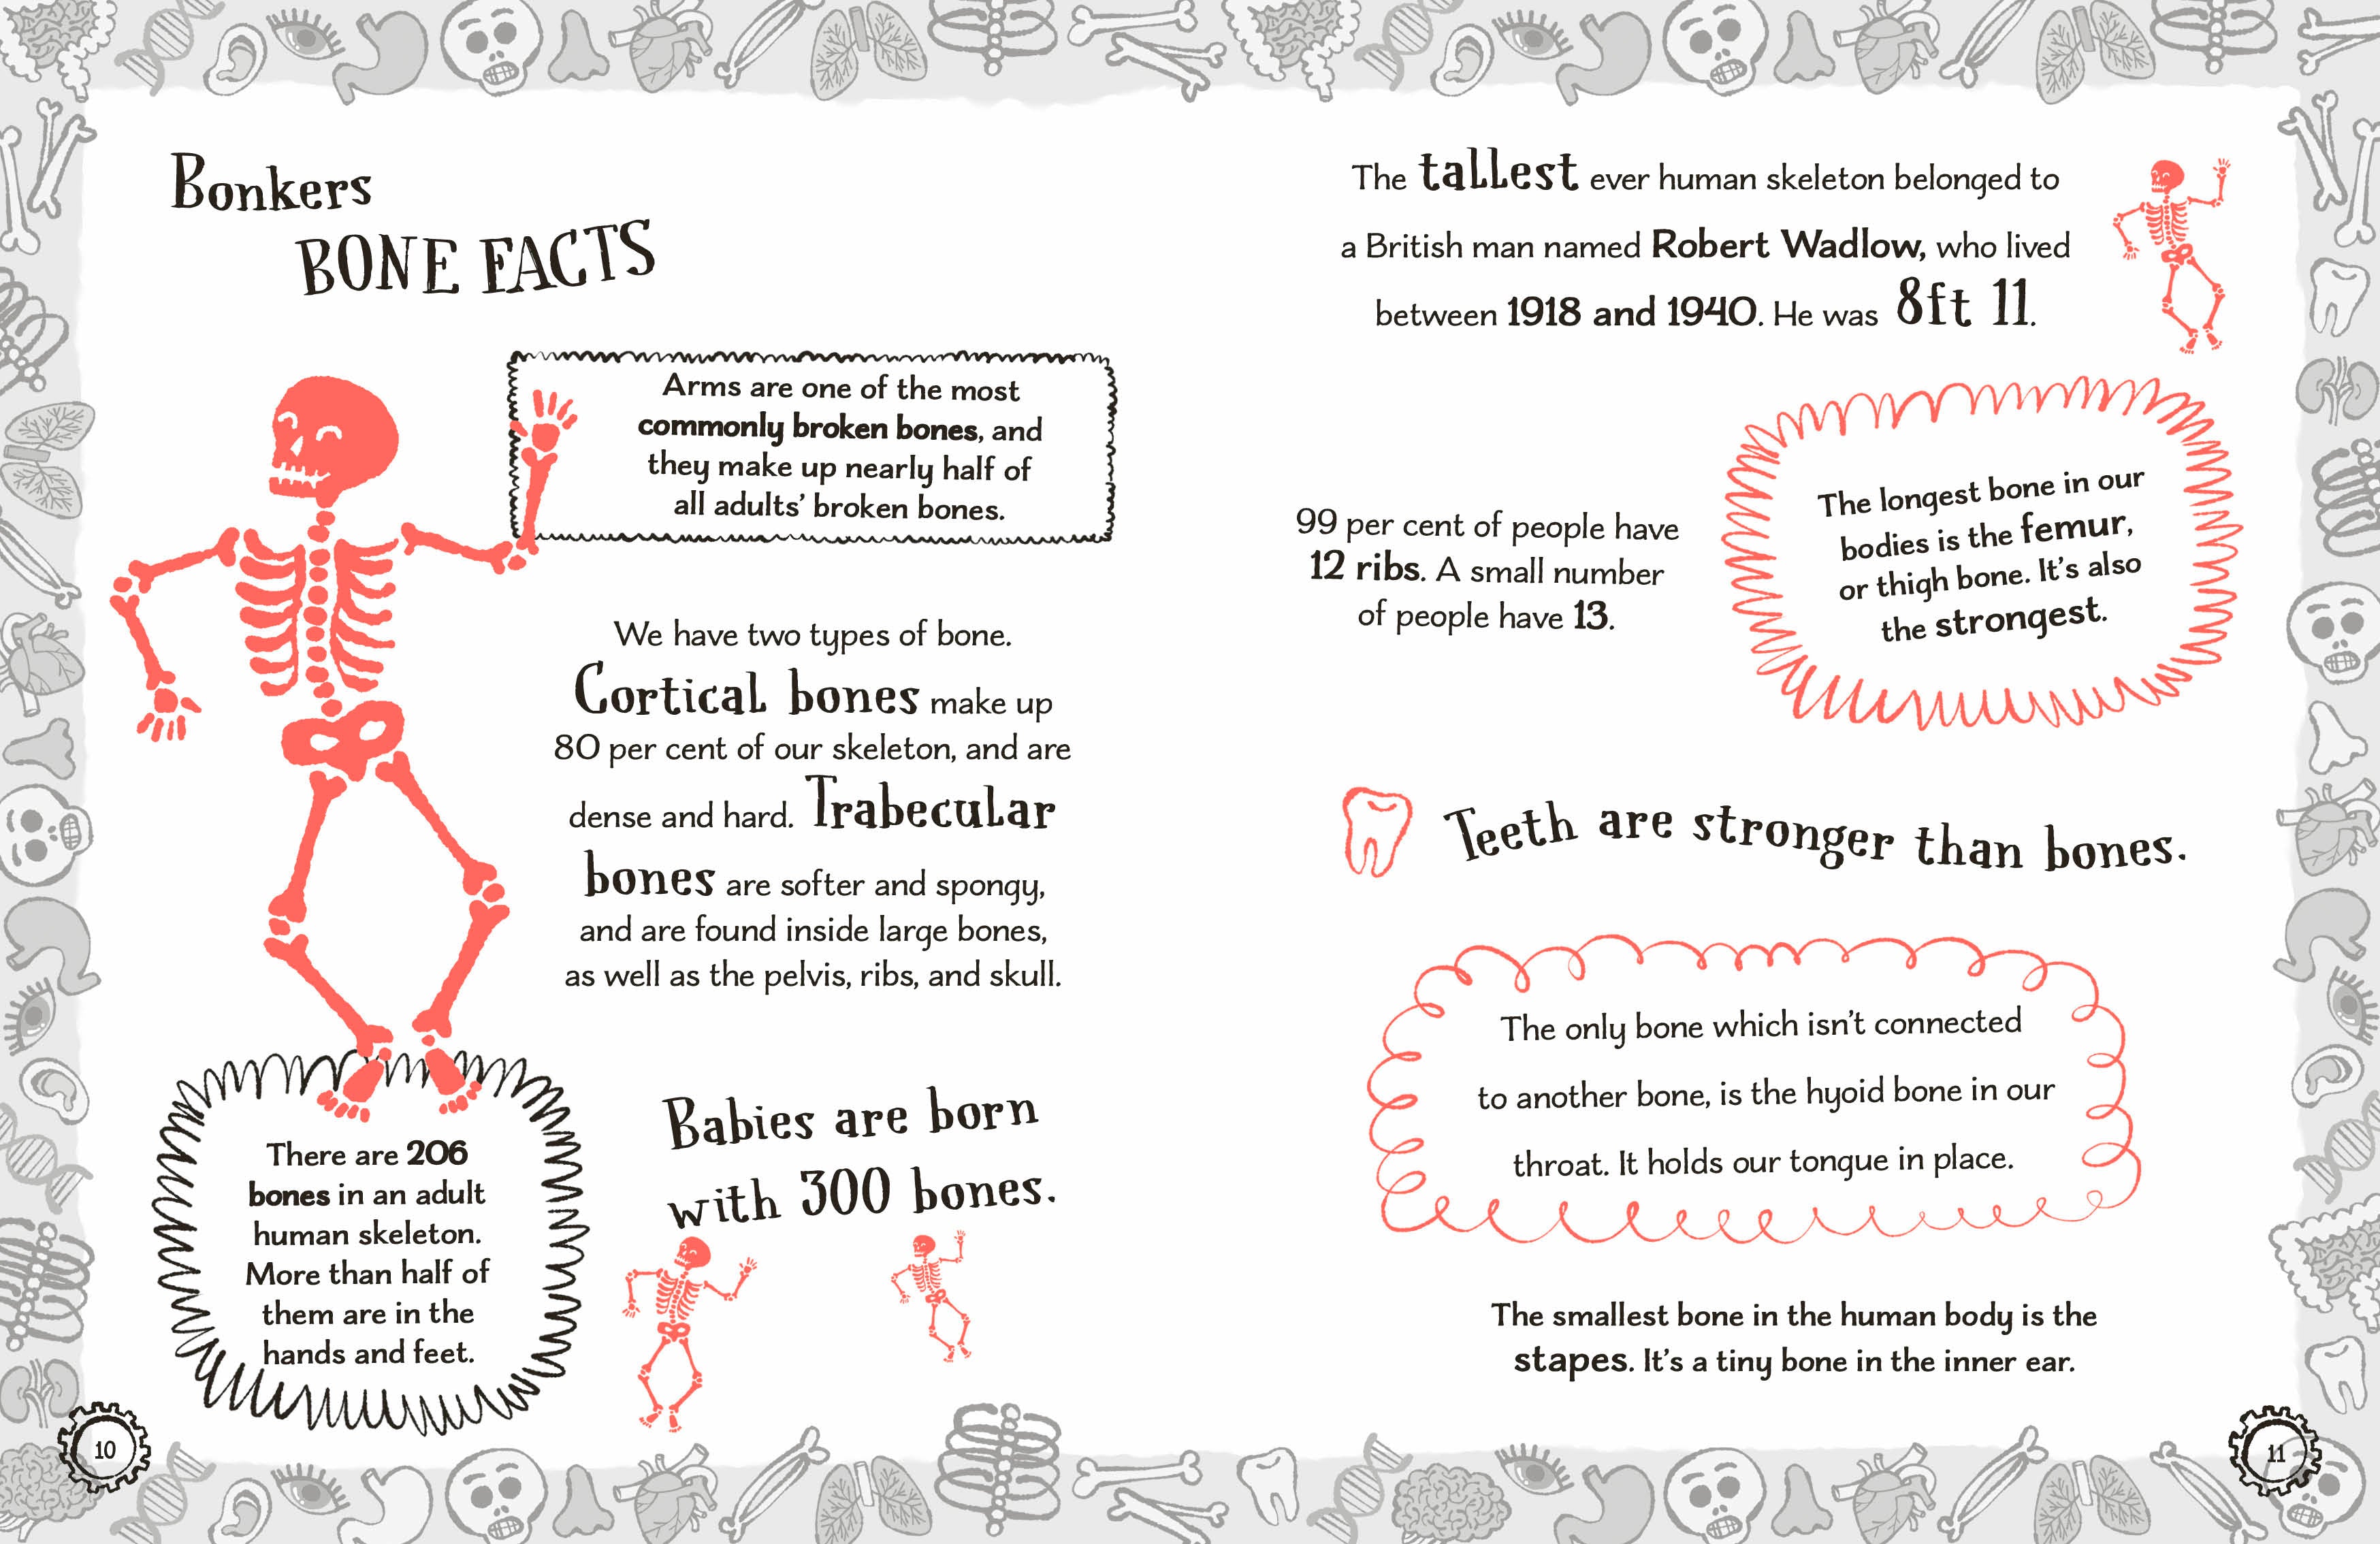 Bonkers
BONE FACTS
Arms are one of the most
commonly broken bones, and
they make up nearly half of
all adults' broken bones.
We have two types of bone.
Cortical bones make up
80 per cent of our skeleton, and are
dense and hard. Trabecular
bones are softer and spongy,
and are found inside large bones,
as well as the pelvis, ribs, and skull.
There are 206
bones in an adult
human skeleton.
More than half of
them are in the
hands and feet.
Babies are born
with 300 bones.
10
The tallest ever human skeleton belonged to
a British man named Robert Wadlow, who lived
between 1918 and 1940. He was 8ft 11.
99 per cent of people have
12 ribs. A small number
of people have 13.
The longest bone in our
bodies is the femur,
or thigh bone. It's also
the strongest.
Teeth are stronger than bones.
The only bone which isn't connected
to another bone, is the hyoid bone in our
throat. It holds our tongue in place.
The smallest bone in the human body is the
stapes. It's a tiny bone in the inner ear.
11